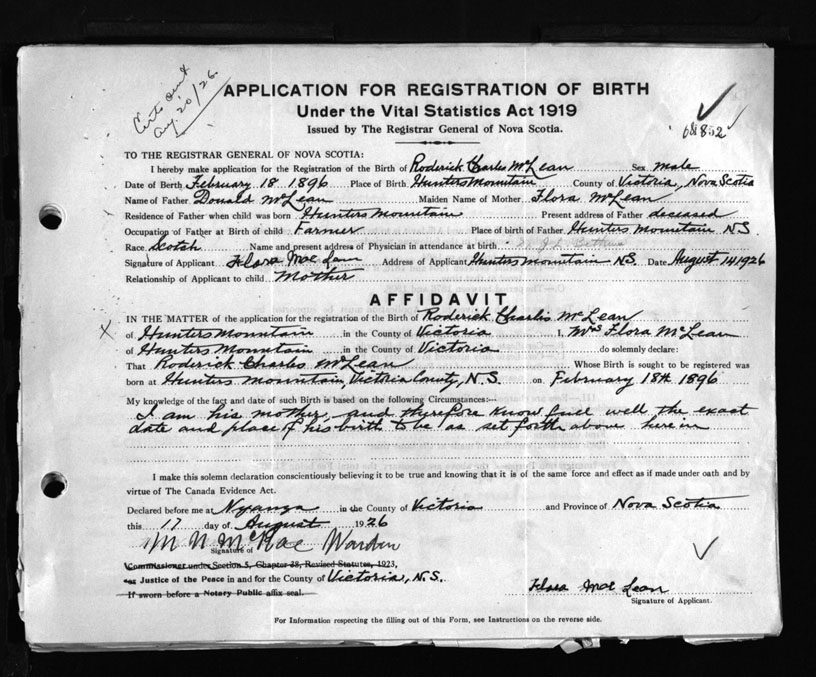 Certs sent
Aug. 20/26.
APPLICATION FOR REGISTRATION OF BIRTH
Under the Vital Statistics Act 1919
Issued by The Registrar General of Nova Scotia.
TO THE REGISTRAR GENERAL OF NOVA SCOTIA:
I hereby make application for the Registration of the Birth of Roderick Charles McLean Sex male
Date of Birth February 18 1896 Place of Birth Hunters Mountain County of Victoria, Nova Scotia
Name of Father Donald McLean Maiden Name of Mother Flora McLean
Residence of Father when child was born Hunters Mountain Present address of Father deceased
Occupation of Father at Birth of child Farmer Place of birth of Father Hunters Mountain N.S.
Race Scotch Name and present address of Physician in attendance at birth Dr J L Bethune
Signature of Applicant Flora Mac Lean Address of Applicant Hunters Mountain N.S. Date August 14 1926
Relationship of Applicant to child Mother
AFFIDAVIT
IN THE MATTER of the application for the registration of the Birth of Roderick Charles McLean
x of Hunters Mountain in the County of Victoria I, Mrs Flora McLean
of Hunters Mountain in the County of Victoria do solemnly declare:
That Roderick Charles McLean Whose Birth is sought to be registered was
born at Hunters Mountain, Victoria County, N.S. on February 18th 1896
My knowledge of the fact and date of such Birth is based on the following Circumstances:—
I am his mother, and therefore know full well the exact
date and place of his birth to be as set forth above herein
I make this solemn declaration conscientiously believing it to be true and knowing that it is of the same force and effect as if made under oath and by
virtue of The Canada Evidence Act.
Declared before me at Nyanza in the County of Victoria and Province of Nova Scotia
this 17 day of August 1926
M N McRae Warden
Signature of
Commissioner under Section 5, Chapter 38, Revised Statutes, 1923,
or Justice of the Peace in and for the County of Victoria, N.S.
If sworn before a Notary Public affix seal.
Flora Mac Lean
Signature of Applicant.
For Information respecting the filling out of this Form, see Instructions on the reverse side.